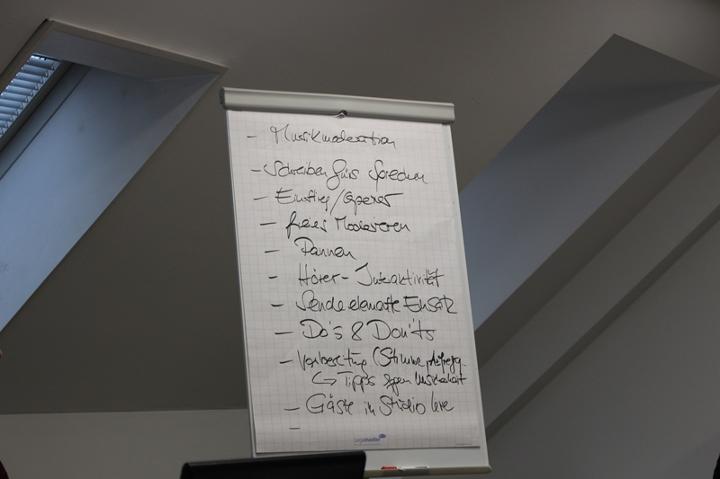 - Musikmoderation
- Schreiben fürs Sprechen
- Einstieg/Opener
- freies Moderieren
- Pannen
- Hörer-Interaktivität
- Sendeelemente Einsatz
- Do's & Don'ts
- Vorbereitung (Stimme,
↳ Tipps gegen Unsicherheit
- Gäste im Studio live
-
legamaster